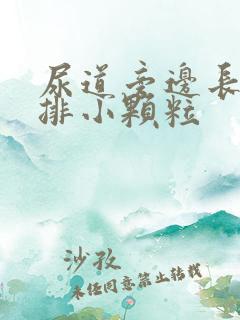 尿道旁邊長
排小顆粒
沙孜
未经同意禁止转载